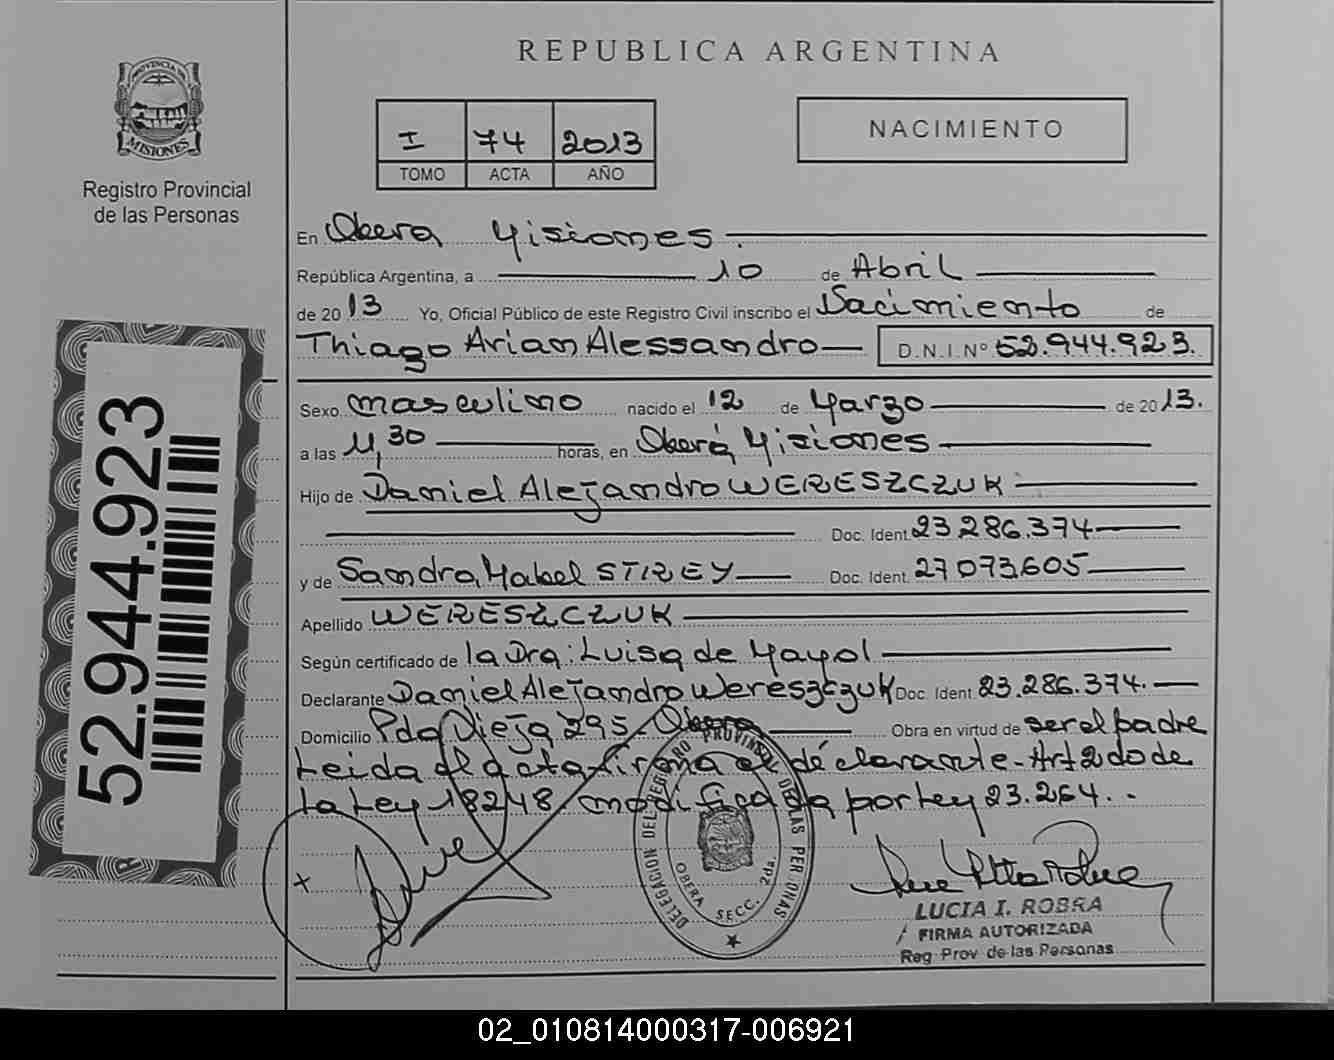 REPUBLICA ARGENTINA
PROVINCIA DE
MISIONES
Registro Provincial
de las Personas
I 74 2013
TOMO ACTA AÑO
NACIMIENTO
En Oberá Misiones.
República Argentina, a 10 de Abril
de 2013 Yo, Oficial Público de este Registro Civil inscribo el Nacimiento de
Thiago Arian Alessandro D.N.I.Nº 52.944.923.
Sexo masculino nacido el 12 de Marzo de 2013.
a las 11,30 horas, en Oberá, Misiones
Hijo de Daniel Alejandro WERESZCZUK
Doc. Ident. 23.286.374
y de Sandra Mabel STIREY Doc. Ident. 27073.605
Apellido WERESZCZUK
Según certificado de la Dra: Luisa de Mayol
Declarante Daniel Alejandro Wereszczuk Doc. Ident. 23.286.374.
Domicilio Pda Vieja 295. Oberá Obra en virtud de ser el padre
Leida el acta firma el déclarante. Art 2do de
la Ley 18248, modificada por Ley 23.264.
52.944.923
DELEGACION DEL REGISTRO PROVINCIAL DE LAS PERSONAS
OBERA SECC. 2da.
LUCIA I. ROBRA
FIRMA AUTORIZADA
Reg Prov de las Personas
02_010814000317-006921